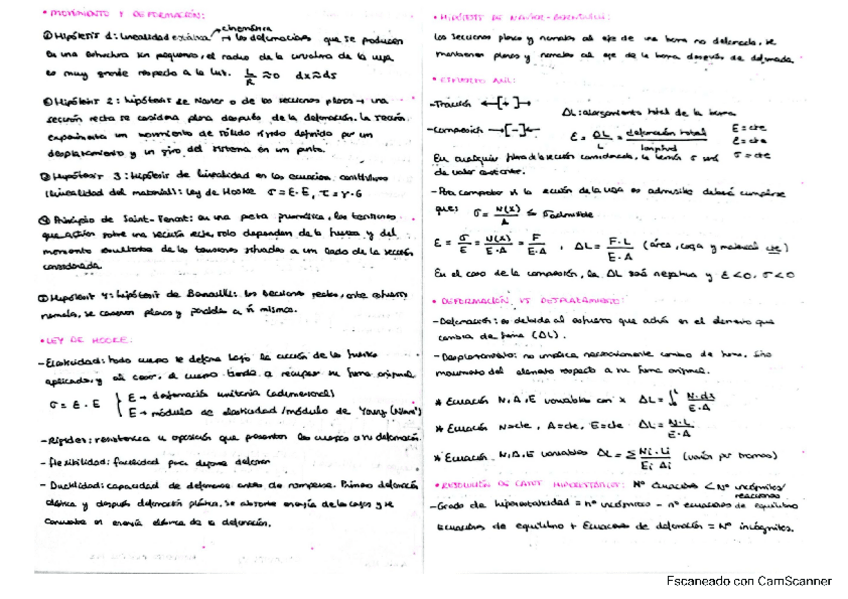 • MOVIMIENTO Y DEFORMACIÓN:
① Hipótesis 1: linealidad cinemática → las deformaciones que se producen
en una estructura son pequeñas, el radio de la curvatura de la viga
es muy grande respecto a la luz. L/R ≈ 0 dx ≈ ds
Hipótesis 2: hipótesis de Navier o de las secciones planas → una
sección recta se considera plana después de la deformación. La sección
experimenta un movimiento de sólido rígido definido por un
desplazamiento y un giro del sistema en un punto.
Hipótesis 3: Hipótesis de linealidad en las ecuaciones constitutivas
(linealidad del material): Ley de Hooke σ = E·E, τ = γ·G
Principio de Saint-Venant: en una pieza prismática, las tensiones
que actúan sobre una sección recta, solo dependen de la fuerza y del
momento resultantes de las tensiones situadas a un lado de la sección
considerada.
Hipótesis 4: hipótesis de Bernouilli: las secciones rectas, ante esfuerzo
normales, se conservan planas y paralelas a sí mismas.
• LEY DE HOOKE:
- Elasticidad: todo cuerpo se deforma bajo la acción de las fuerzas
aplicadas, y al cesar, el cuerpo tiende a recuperar su forma original
σ = E·E
E → deformación unitaria (adimensional)
E → módulo de elasticidad/módulo de Young (N/mm²)
- Rigidez: resistencia u oposición que presentan los cuerpos a su deformación.
- Flexibilidad: facilidad para
- Ductilidad: capacidad de deformarse antes de romperse. Primero deformación
elástica y después deformación plástica, se absorbe energía de las cargas y se
convierte en energía elástica de la deformación.
• HIPÓTESIS DE NAVIER-BERNOUILLI:
Las secciones planas y normales al eje de una barra no deformada, se
mantienen planas y normales al eje de la barra después de deformada.
• ESFUERZO AXIL:
- Tracción ←[+]→ ΔL: alargamiento total de la barra
- Compresión →[-]← E = ΔL/L = deformación total/longitud E = cte
E = cte
En cualquier fibra de la sección considerada, la tensión σ será σ = cte
de valor constante.
- Para comprobar si la sección de la viga es admisible deberá cumplirse
que: σ = N(x)/A ≤ σadmisible
E = σ/E = N(x)/E·A = F/E·A , ΔL = F·L/E·A (área, carga y material cte)
En el caso de la compresión, la ΔL será negativa y E<0, σ<0
• DEFORMACIÓN VS DESPLAZAMIENTO:
- Deformación: es debida al esfuerzo que actúa en el elemento que
cambia de forma (ΔL).
- Desplazamiento: no implica necesariamente cambio de forma, sino
movimiento del elemento respecto a su forma original.
* Ecuación N, A, E variables con x ΔL = ∫ N·ds/E·A
* Ecuación N=cte, A=cte, E=cte ΔL = N·L/E·A
* Ecuación N, A, E variables ΔL = Σ Ni·Li/Ei Ai (varía por tramos)
• RESOLUCIÓN DE CASOS HIPERESTÁTICOS: Nº Ecuaciones < Nº incógnitas/
reacciones
- Grado de hiperestaticidad = nº incógnitas - nº ecuaciones de equilibrio
Ecuaciones de equilibrio + Ecuaciones de deformación = Nº incógnitas.
Escaneado con CamScanner